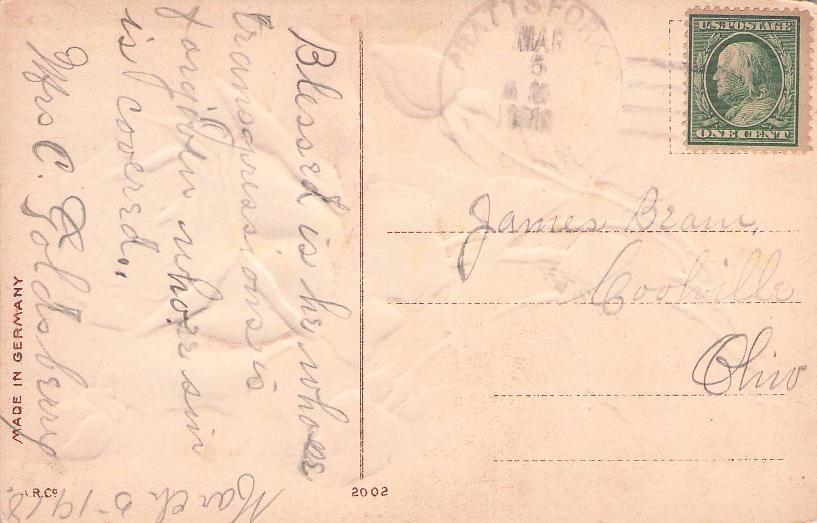 Blessed is he whose
transgressions is
forgiven whose sin
is covered.,
Mrs C. E. Goldsberry
March 5-1910.
MADE IN GERMANY
A.R.Co
2002
PRATTSFORK,
MAR
5
U.S. POSTAGE
ONE CENT
James Beam,
Coolville
Ohio